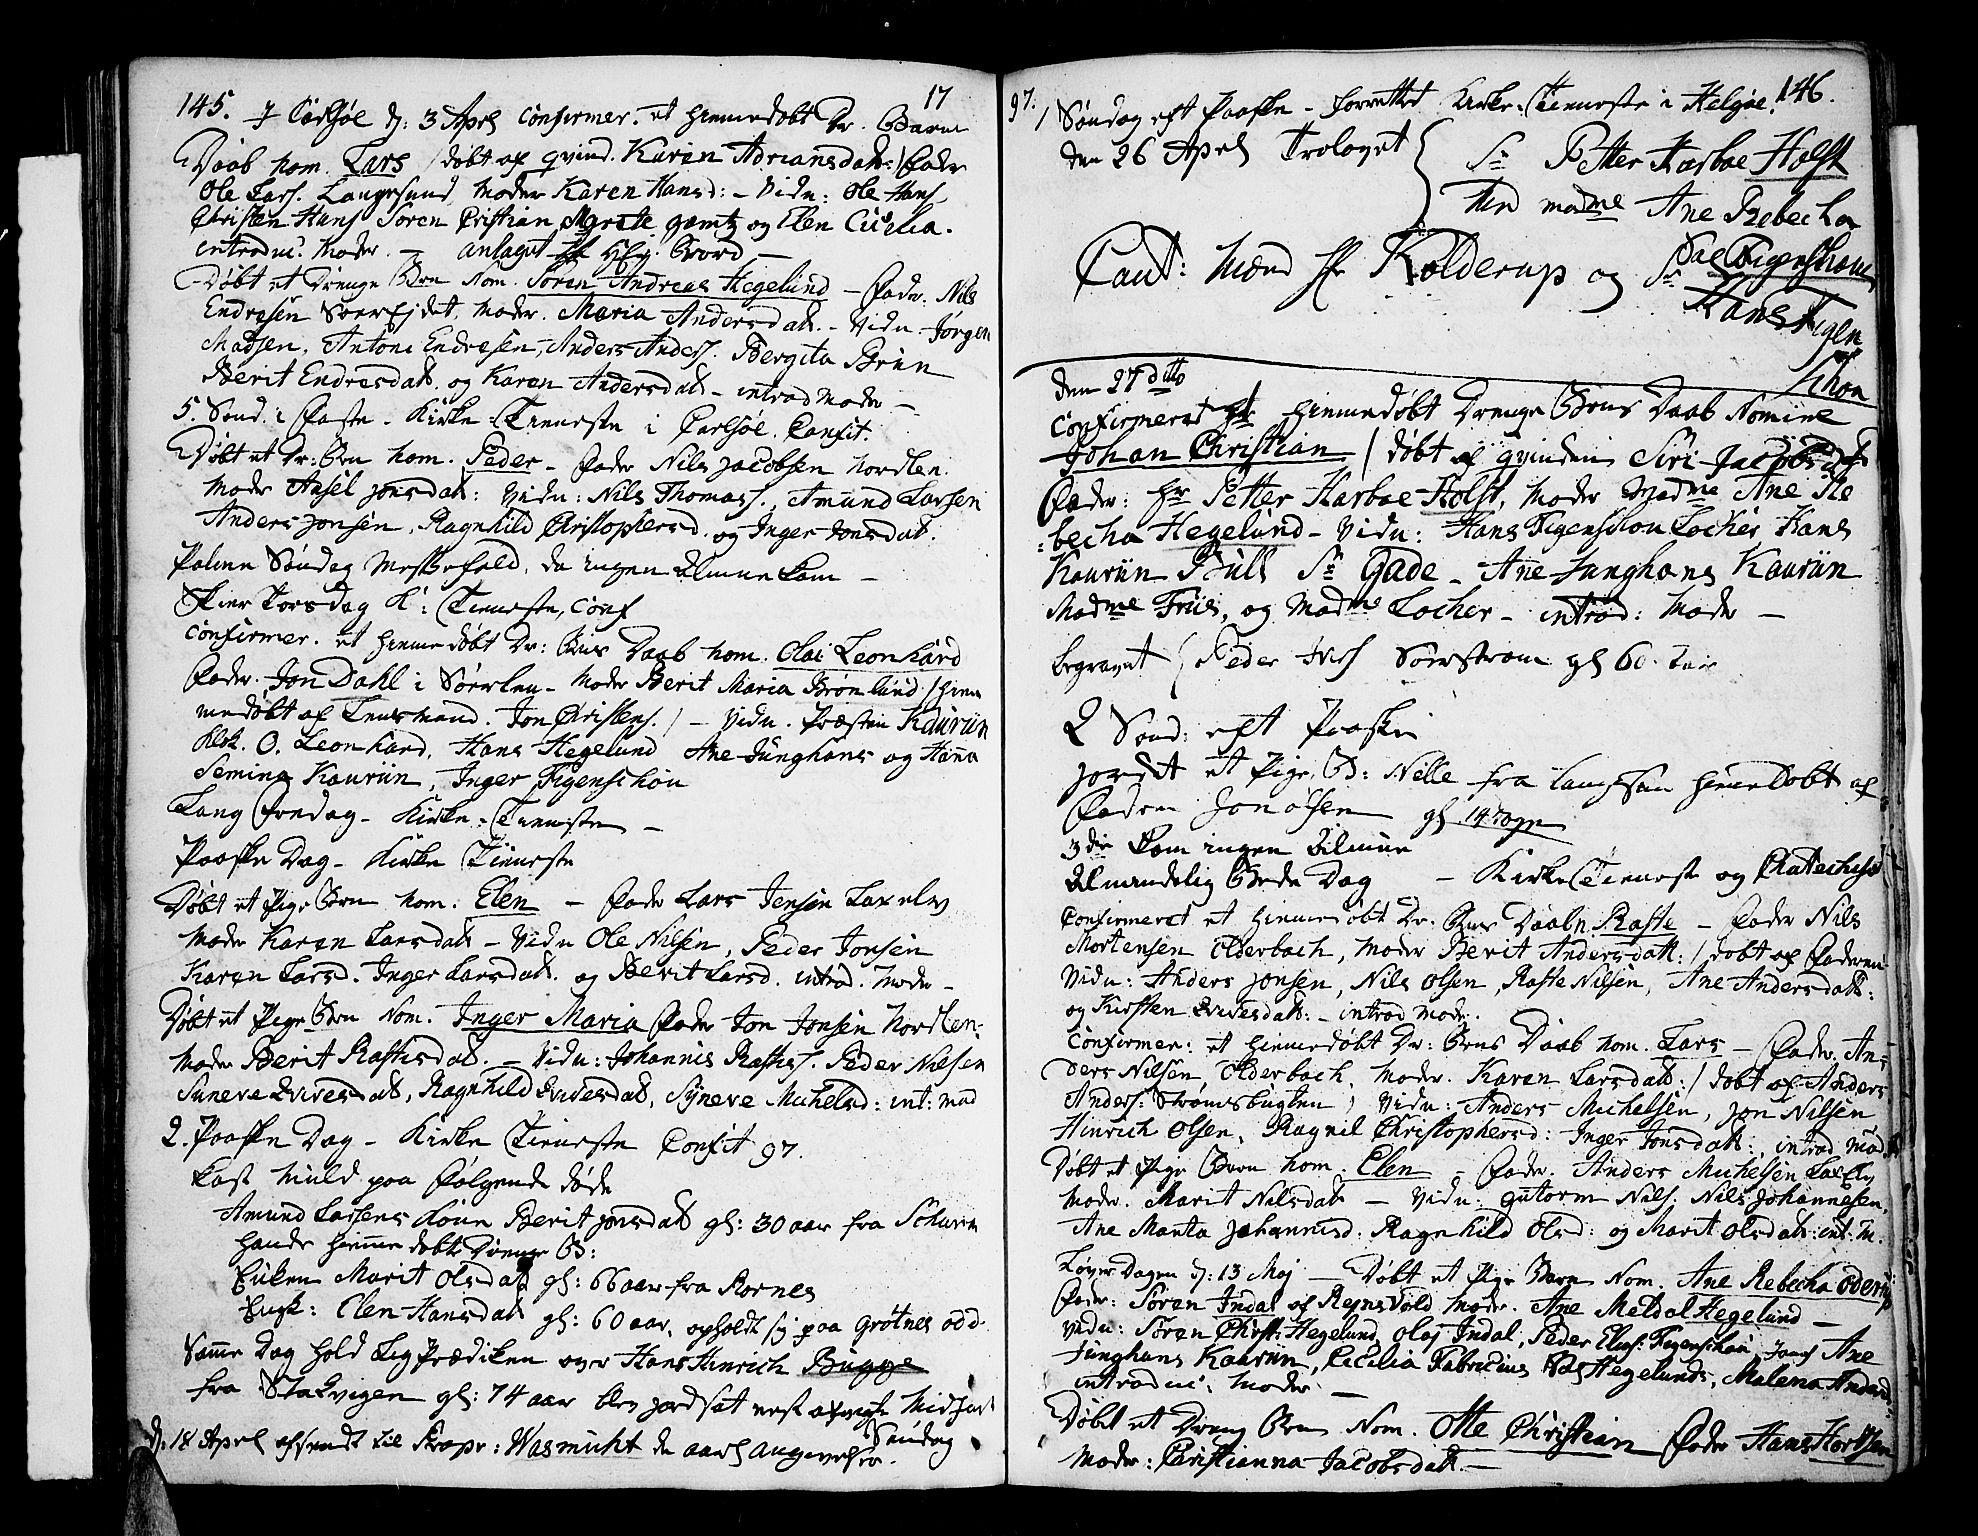 145. 17
J Carlsøe d: 3 April confirmer. et hiemmedøbt Dr. Barns
Daab nom. Lars / døbt af qvind. Karen Adriansdatr: / Fader
Ole Lars. Langesund, Moder Karen Hansd: - Vidn: Ole Hans.
Christen Hans. Søren Cristian Marete Jamtz og Elen Cicelia.
introduc. Moder. - anlaget Bord -
Døbt et Drenge Brn Nom. Søren Andreas Hegelund - Fader. Nils
Endresen Sørfjidet, Moder. Maria Andersdatr. - Vidn Jørgen
Madsen, Antoni Endresen, Anders Anders. Bergita Brun
Berit Endresdatr. og Karen Andersdatr - introd Moder -
5. Sønd. i Faste. Kirke-Tieneste i Carlsøe. Confit.
Døbt et Dr: Brn Nom. Peder - Fader Nils Jacobsen Nordlen.
Moder Ansel Jonsdatr: Vidn: Nils Thomas., Amund Larsen
Anders Jonsen, Ragnhild Christophersd. og Inger Jonsdatr.
Palme Søndag Messefald, da ingen Almue kom -
Skier Torsdag K: Tieneste, Conf
Confirmer. et hiemmedøbt Dr: Brns Daab nom. Olai Leonhard
Fader. Jon Dahl i Sørlen - Moder Berit Maria Brønlund / hiem
medøbt af Lensmand. Jon Christens. / - Vidn. Præsten Kaurin
Klok. O. Leonhard, Hans Hegelund Ane Junghans og Hanna
Semina Kauriin, Inger Figenschou
Lang Fredag - Kirke-Tieneste -
Paaske Dag - Kirke Tieneste
Døbt et Pige Brn nom. Elen - Fader Lars Jensen Laxelv
Moder Karen Larsdatr - Vidn Ole Nilsen, Peder Jonsen
Karen Larsd. Inger Larsdatr. og Berit Larsd. introd. Moder -
Døbt et Pige Brn Nom. Inger Maria Fader Jon Jonsen Nordlen:
Moder Berit Rastesdatr. - Vidn: Johannis Rastes. Peder Nilsen
Suneva Evivesdatr, Ragnhild Evivesdatr, Syneve Michelsd: int: Mod
2. Paaske Dag - Kirke Tieneste Confit 97.
Kast Muld paa følgende døde
Amund Larsens Kone Berit Jonsdatr gl: 30 aar fra
Hendes hiemme døbte Drenge B:
Enken Marit Olsdatr gl: 66 aar fra Kornes
Enk: Elen Hansdatr gl: 60 aar, opholdt sig paa Grøtnes odd
Samme Dag holdt Lig Prædiken over Hans Hinrich Bugge
fra Stakvigen gl: 74 aar blev jordsat nest Midfaste
Søndag
d: 18 April afsendt til Propr: Wasmuht de aarl angivelser.
97. 146.
1 Søndag eft Paaske - forrettet Kirke-Tieneste i Helgøe.
den 26 April Trolovet { Sr Petter Harboe Holst
Med madme Ane Rebecha
Caut: Mænd Hr Kolderup og Sr
Hans Figen
schou
den 27 ditto
Confirmeret hiemmedøbt Drenge Brns Daab Nomine
Johan Christian / døbt af qvinden Siri Jacobsd
Fader: Hr Petter Harboe Holst, Moder Madme Ane Re
becha Hegelund - Vidn: Hans Figenschou Locher, Hans
Kauriin Bull Sr Gade - Ane Junghans Kauriin
Madme Friis, og Madme Locher - introd: Moder -
Begravet / Peder Ivers. Sørstrøm gl 60. Aar
2 Sønd: eft Paaske
jordet et Pige B: Nille fra hiemdøbt af
Faderen Jon Olsen gl 14 Dage
3die Kom ingen Almue
Almindelig Bede Dag - Kirke Tieneste og Chatechis
Confirmeret et hiemmedøbt Dr: Brns Daab n. Raste - Fader Nils
Mortensen Olderbach, Moder Berit Andersdatr: / døbt af Faderen
Vidn: Anders Jonsen, Nils Olsen, Raste Nilsen, Ane Andersdatr:
og Kirsten Evivesdatr: - introd Moder.
Confirmer: et hiemmedøbt Dr: Brns Daab nom. Lars - Fader. An-
ders Nilsen Olderbach, Moder. Karen Larsdatr: / døbt af Anders
Anders: Strømsbugten / Vidn: Anders Michelsen, Jon Nilsen
Hinrich Olsen, Ragnil Christophersd: Inger Jonsdatr:, introd Mod.
Døbt et Pige Barn nom. Elen - Fader. Anders Michelsen Laxelv
Moder. Marit Nilsdatr - Vidn: Gutorm Nils. Nils Johannesen,
Ane Marita Johannisd: Ragnhild Olsd: og Marit Olsdatr: int: M.
Løver Dagen d: 13 Maj - Døbt et Pige Barn Nom. Ane Rebecha
Fader: Søren Indal af Reynsvold Moder. Ane Meldal Hegelund -
Vidn: Søren Christ: Hegelund, Olaj Indal, Peder Elias: Figenschou, Ane
Junghans Kauriin, Cecilia Fabricius Hegelunds, Malena
introduc: Moder -
Døbt et Dreng Brn Nom. Otte Christian Fader Hans
Moder: Christianna Jacobsdatr. -